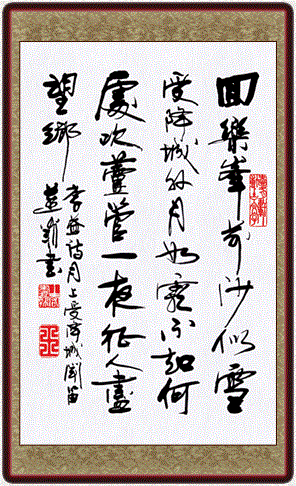 回樂峯前沙似雪
受降城外月如霜不知何
處吹蘆管一夜征人盡
望鄉
李益诗月上受降城闻笛
書